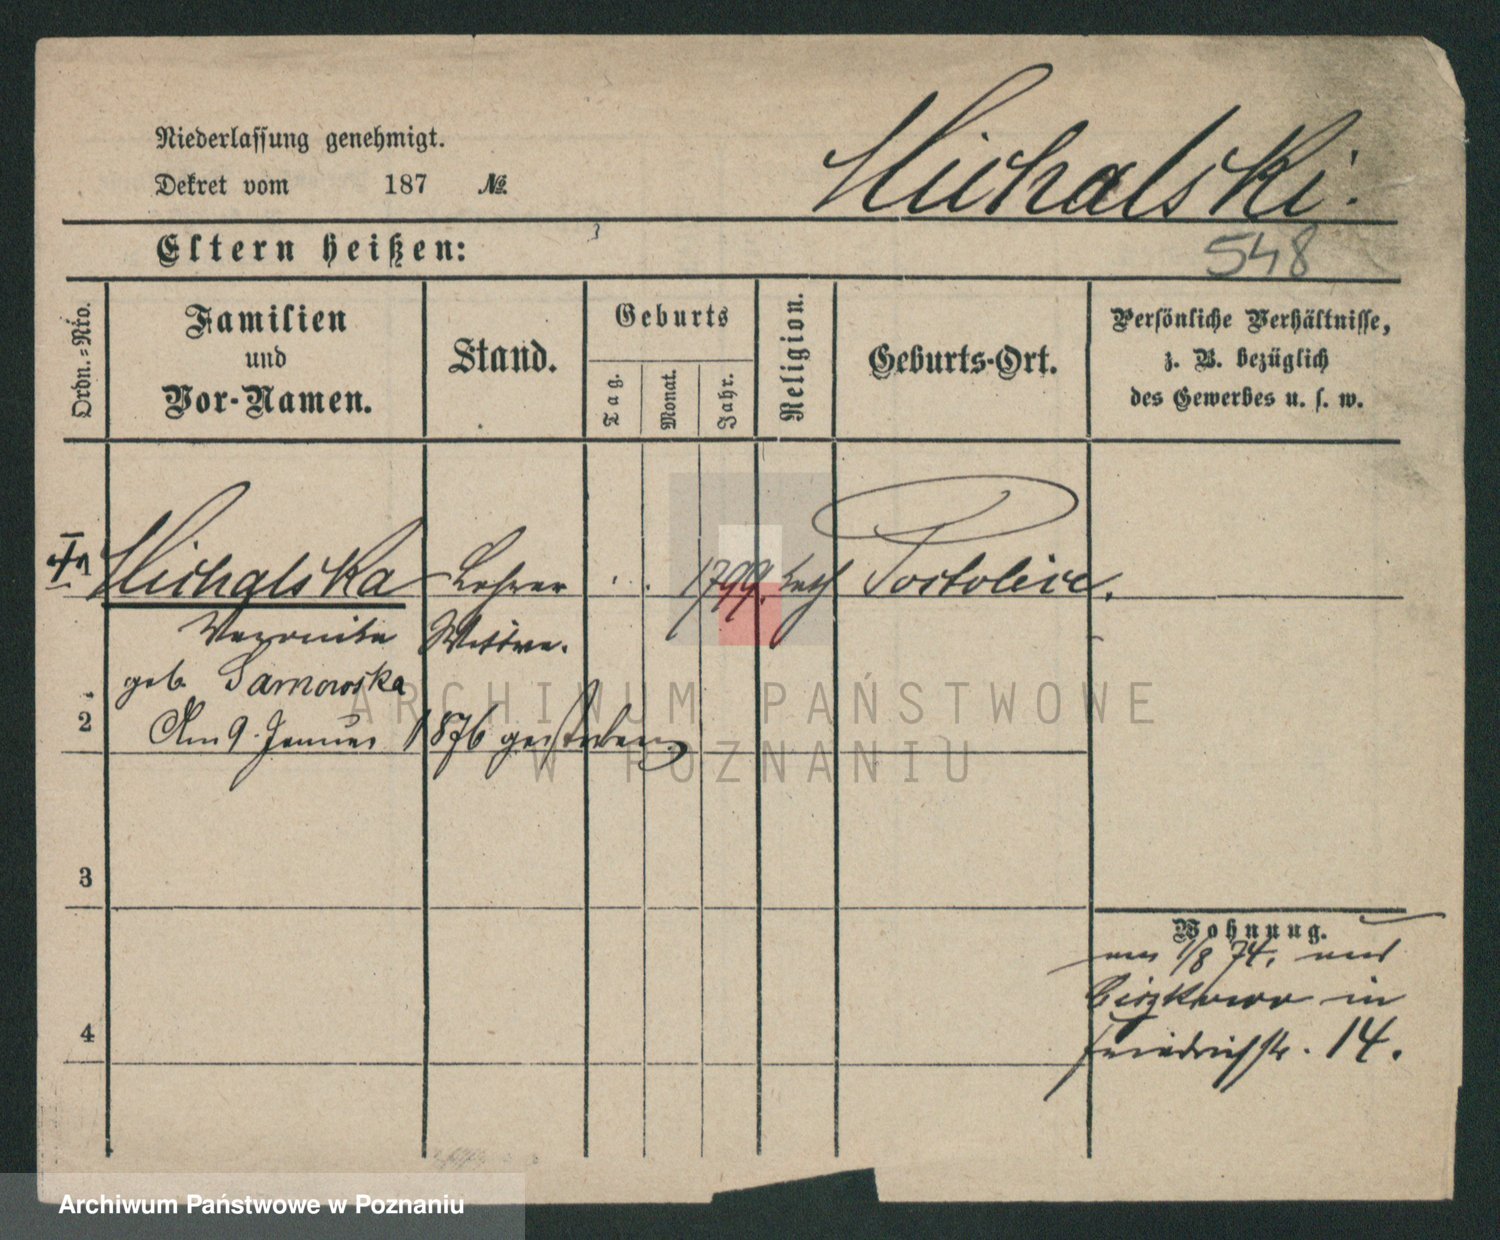 Niederlassung genehmigt.
Dekret vom 187 №.
Michalski.
548
Eltern heißen:
Ordn.=Nro.
Familien
und
Vor-Namen.
Stand.
Geburts
Tag.
Monat.
Jahr.
Religion.
Geburts-Ort.
Persönliche Verhältnisse,
z. B. bezüglich
des Gewerbes u. s. w.
Michalska Lehrer 1799. kath
Wittwe.
geb.
2
Am 9. Januar 1876 gestorben.
3
Wohnung.
1/8 74.
in
4
Friedrichstr. 14.
ARCHIWUM PAŃSTWOWE
W POZNANIU
Archiwum Państwowe w Poznaniu